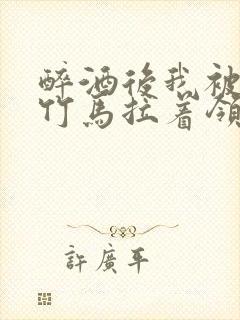 醉酒後我被
竹馬拉着領
許廣平